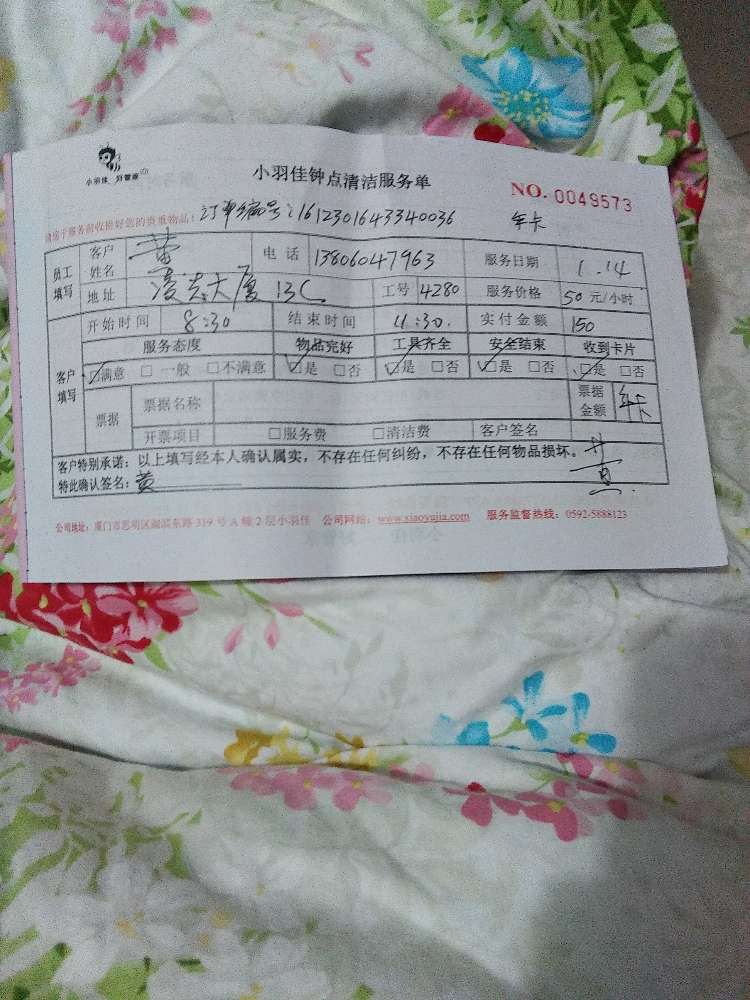 小羽佳 好管家
小羽佳钟点清洁服务单
NO. 0049573
订单编号:1612301643340036 年卡
员工填写 客户姓名 黄 电话 13806047963 服务日期 1.14
地址 大厦13C 工号 4280 服务价格 50 元/小时
开始时间 8:30 结束时间 11:30. 实付金额 150
客户填写 服务态度 物品完好 工具齐全 安全结束 收到卡片
☑满意 □ 一般 □ 不满意 ☑是 □否 ☑是 □否 ☑是 □否 ☑是 □否
票据 票据名称 票据金额 年卡
开票项目 □服务费 □清洁费 客户签名
客户特别承诺:以上填写经本人确认属实,不存在任何纠纷,不存在任何物品损坏。
特此确认签名:黄 黄
公司地址:厦门市思明区湖滨东路 319 号 A 幢 2 层小羽佳 公司网站:www.xiaoyujia.com 服务监督热线:0592-5888123